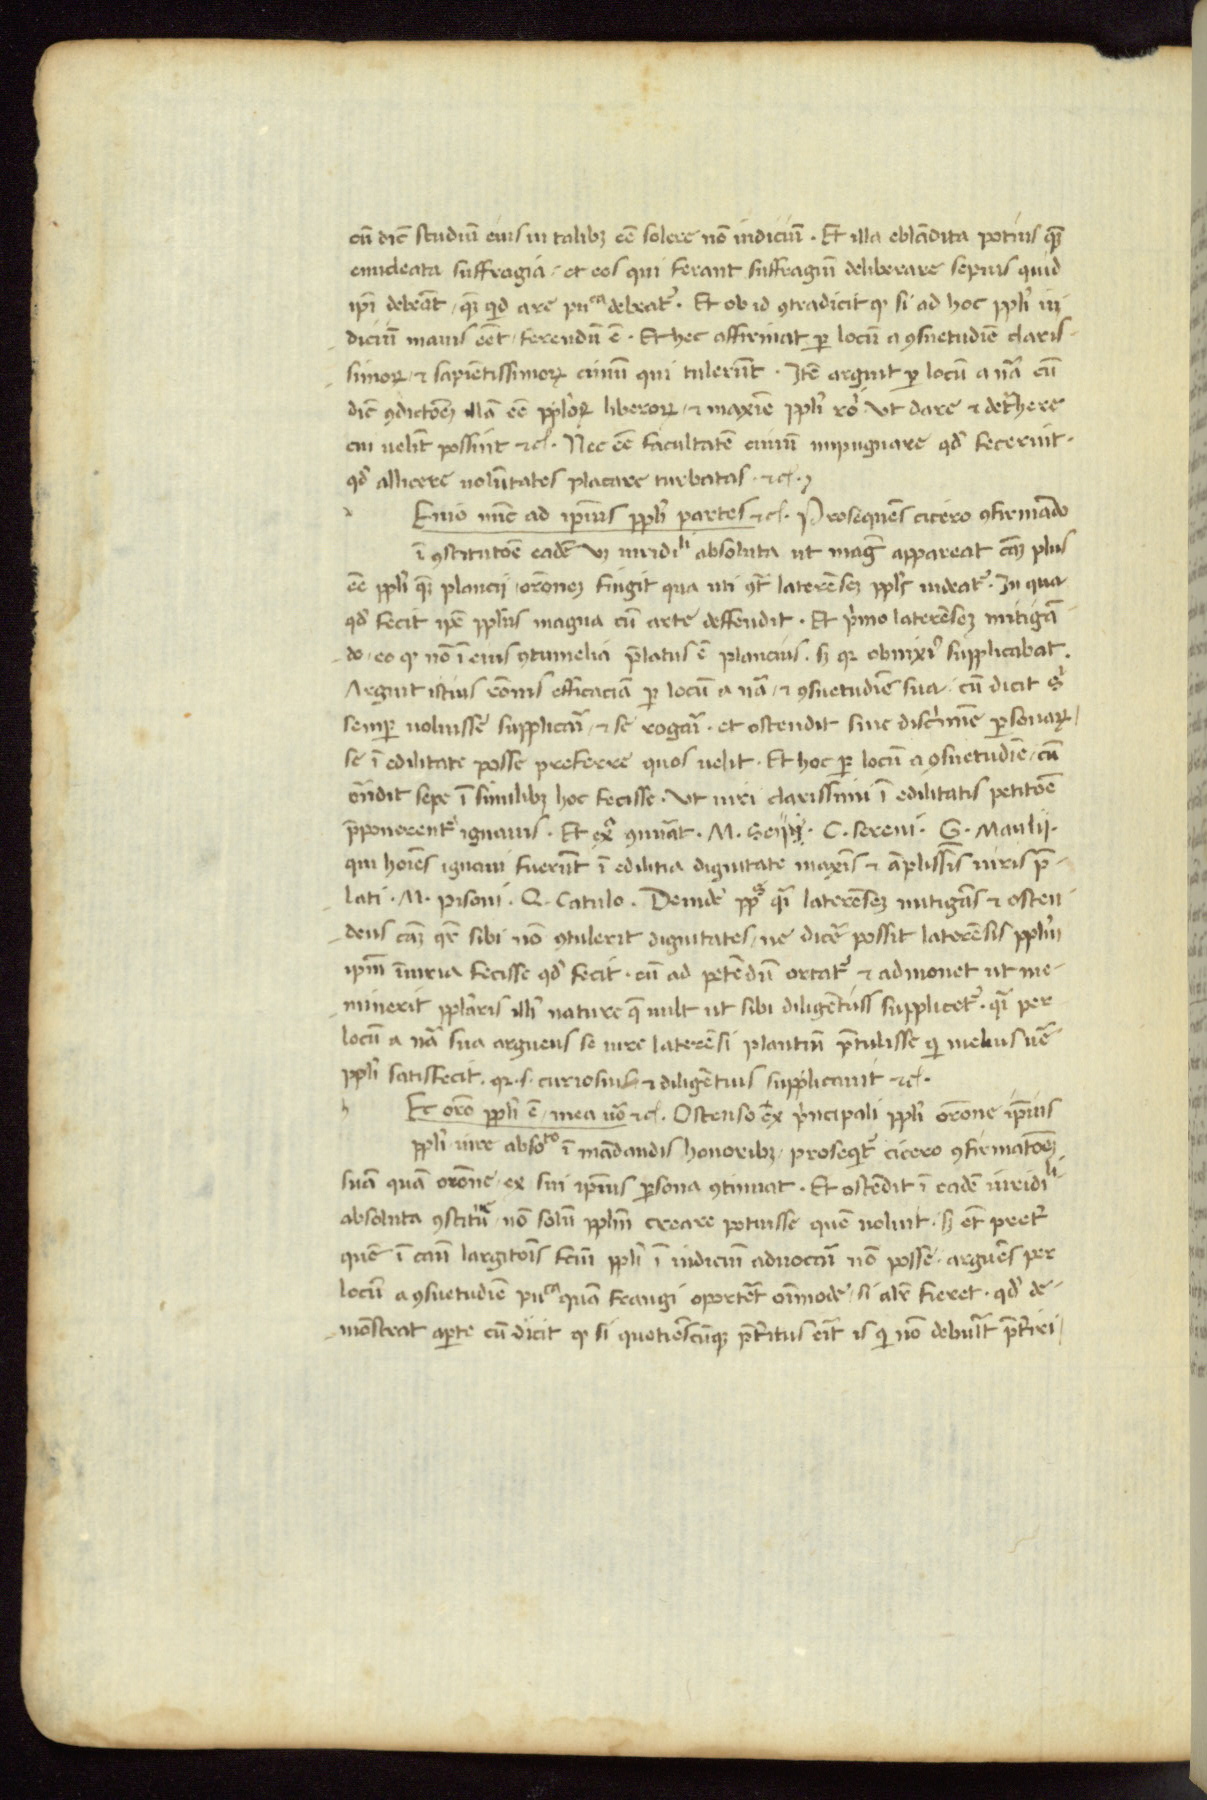 cū dic̄ studiū eius in talibꝫ eē solere nō iudiciū. Et illa eblādita potius qꝫ
enucleata suffragia, et eos qui ferant suffragiū deliberare sepius quid
ip̄i debeāt, qꝫ qd a re pu^ca debeat᷑. Et ob id ꝯtradicit ꝙ si ad hoc ppl̄i iu
diciū mauis eēt, ferendū ē. Et hec affirmat ꝑ locū a ꝯsuetudīe claris-
simoꝝ, & sapiētissimoꝝ ciuiū qui tulerūt. Itē arguit ꝑ locū a nā cū
dic̄ ꝯdictoēꝫ illā eē ppl̄oꝝ liberoꝝ, & maxīe ppl̄i ro᷑ ut dare & det᷑here
cui uelīt possint &c̄. Nec eē facultatē ciuiū impugnare qd̄ fecerint.
qd̄ allicere uolūtates placare turbatas &c̄.
Enio nūc ad ip̄ius ppl̄i partes &c̄. Prosequēs cicero ꝯfirmādo
ī ꝯstitutōe eadē iuridi^li absoluta ut maḡ appareat cāꝫ plus
eē ppl̄i qꝫ plancij, orōneꝫ fingit qua uti ꝯt᷑ laterēseꝫ ppl̄s uideat᷑. In qua
qd̄ fecit ip̄e ppl̄us magna cū arte deffendit. Et p̄mo laterēseꝫ mitigā
do, eo ꝙ nō ī eius ꝯtumelia p̄latus ē plancius. sꝫ qꝛ obnixi᷑ supplicabat.
Arguit istius rōnis efficaciā ꝑ locū a nā, & ꝯsuetudīe sua, cū dicit se
semꝑ uoluisse supplicari, & se rogari. et ostendit sine discrimīe ꝑsonaꝝ
se ī edilitate posse preferre quos uelit. Et hoc ꝑ locū a ꝯsuetudīe, cū
ōndit sepe ī similibꝫ hoc fecisse. Ut uiri clarissimi ī edilitatis petitōe
p̄ponerent᷑ ignauis. Et ex᷑ ꝯnuāt. M. Seij. C. Sereni. G. Manlij.
qui hoīes ignaui fuerūt ī edilitia dignitate maxīs & āplissīs uiris p̄-
lati. M. Pisoni. Q. Catulo. Deinde ppl̄s qī laterēseꝫ mitigās & osten
dens cāꝫ qr̄ sibi nō ꝯtulerit dignitates, ne dicē possit laterēsis ppl̄m
ip̄m īiuria fecisse qd̄ fecit. cū ad petēdū ortat᷑ & admonet ut me-
minerit ppl̄aris illi᷑ nature q̄ uult ut sibi diligētiss supplicet᷑. qī per
locū a nā sua arguens se iure laterēsi plantiū p̄tulisse qi melius uē
ppl̄i satisfecit. qꝛ .s. curiosius & diligētius supplicauit &c̄.
Et orō ppl̄i ē, mea uō &c̄. Ostenso ex p̄ncipali ppl̄i orōne ip̄ius
ppl̄i iure abso^to ī mādandis honoribꝫ, prosequit᷑ cicero ꝯfirmatōēꝫ
suā quā orōne, ex sui ip̄ius ꝑsona ꝯtinuat. Et ostēdit ī eadē iuridi^li
absoluta ꝯstitu^ne, nō solū ppl̄m creare potuisse quē uoluit. sꝫ et᷑ pret᷑
quē ī cām largitōis fcm̄ ppl̄i ī iudiciū aduocari nō posse, arguēs per
locū a ꝯsuetudīe pu^ca quā frangi oportēt oīmode, si alr̄ fieret. qd̄ de-
mōstrat aꝑte cū dicit ꝙ si quotiescūqꝫ p̄titus eīt is qi nō debuīt p̄tiri